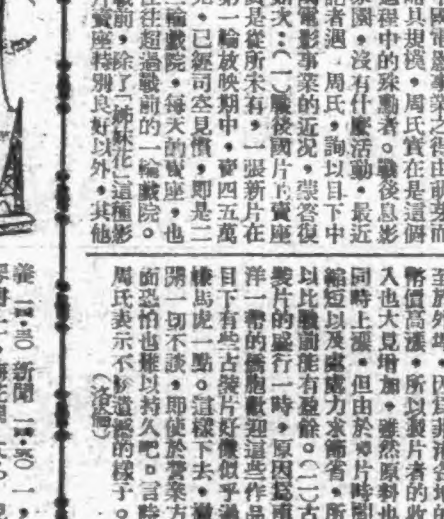 國電影事業之得由萌芽而
至於具規模，周氏實在是這個
過程中的殊勳者。戰後息影
家園，沒有什麼活動。最近
記者遇 周氏，詢以目下中
國電影事業的近况，蒙答復
如次：（一）戰後國片的賣座
真是從所未有，一張新片在
第一輪放映期中，賣四五萬
元，已經司空見慣，即是二
輪戲院，每天的賣座，也
往往超過戰前的一輪戲院。
戰前，除了「姊妹花」這種影
片賣座特別良好以外，其他
至於外埠，因爲菲洲各地的
幣價高漲，所以製片者的收
入也大見增加。雖然原料也
同時上漲，但由於攝片時間
縮短以及處處力求節省，所
以比戰前能有盈餘。（二）古
裝片的盛行一時，原因爲南
洋一帶的僑胞歡迎這些作品
目下有些古裝片好像似乎過
嫌馬虎一點。這樣下去，撇
開一切不談，即使於營業方
面恐怕也難以持久吧。言時
周氏表示不勝遺憾的樣子。
（洛儷）
新聞